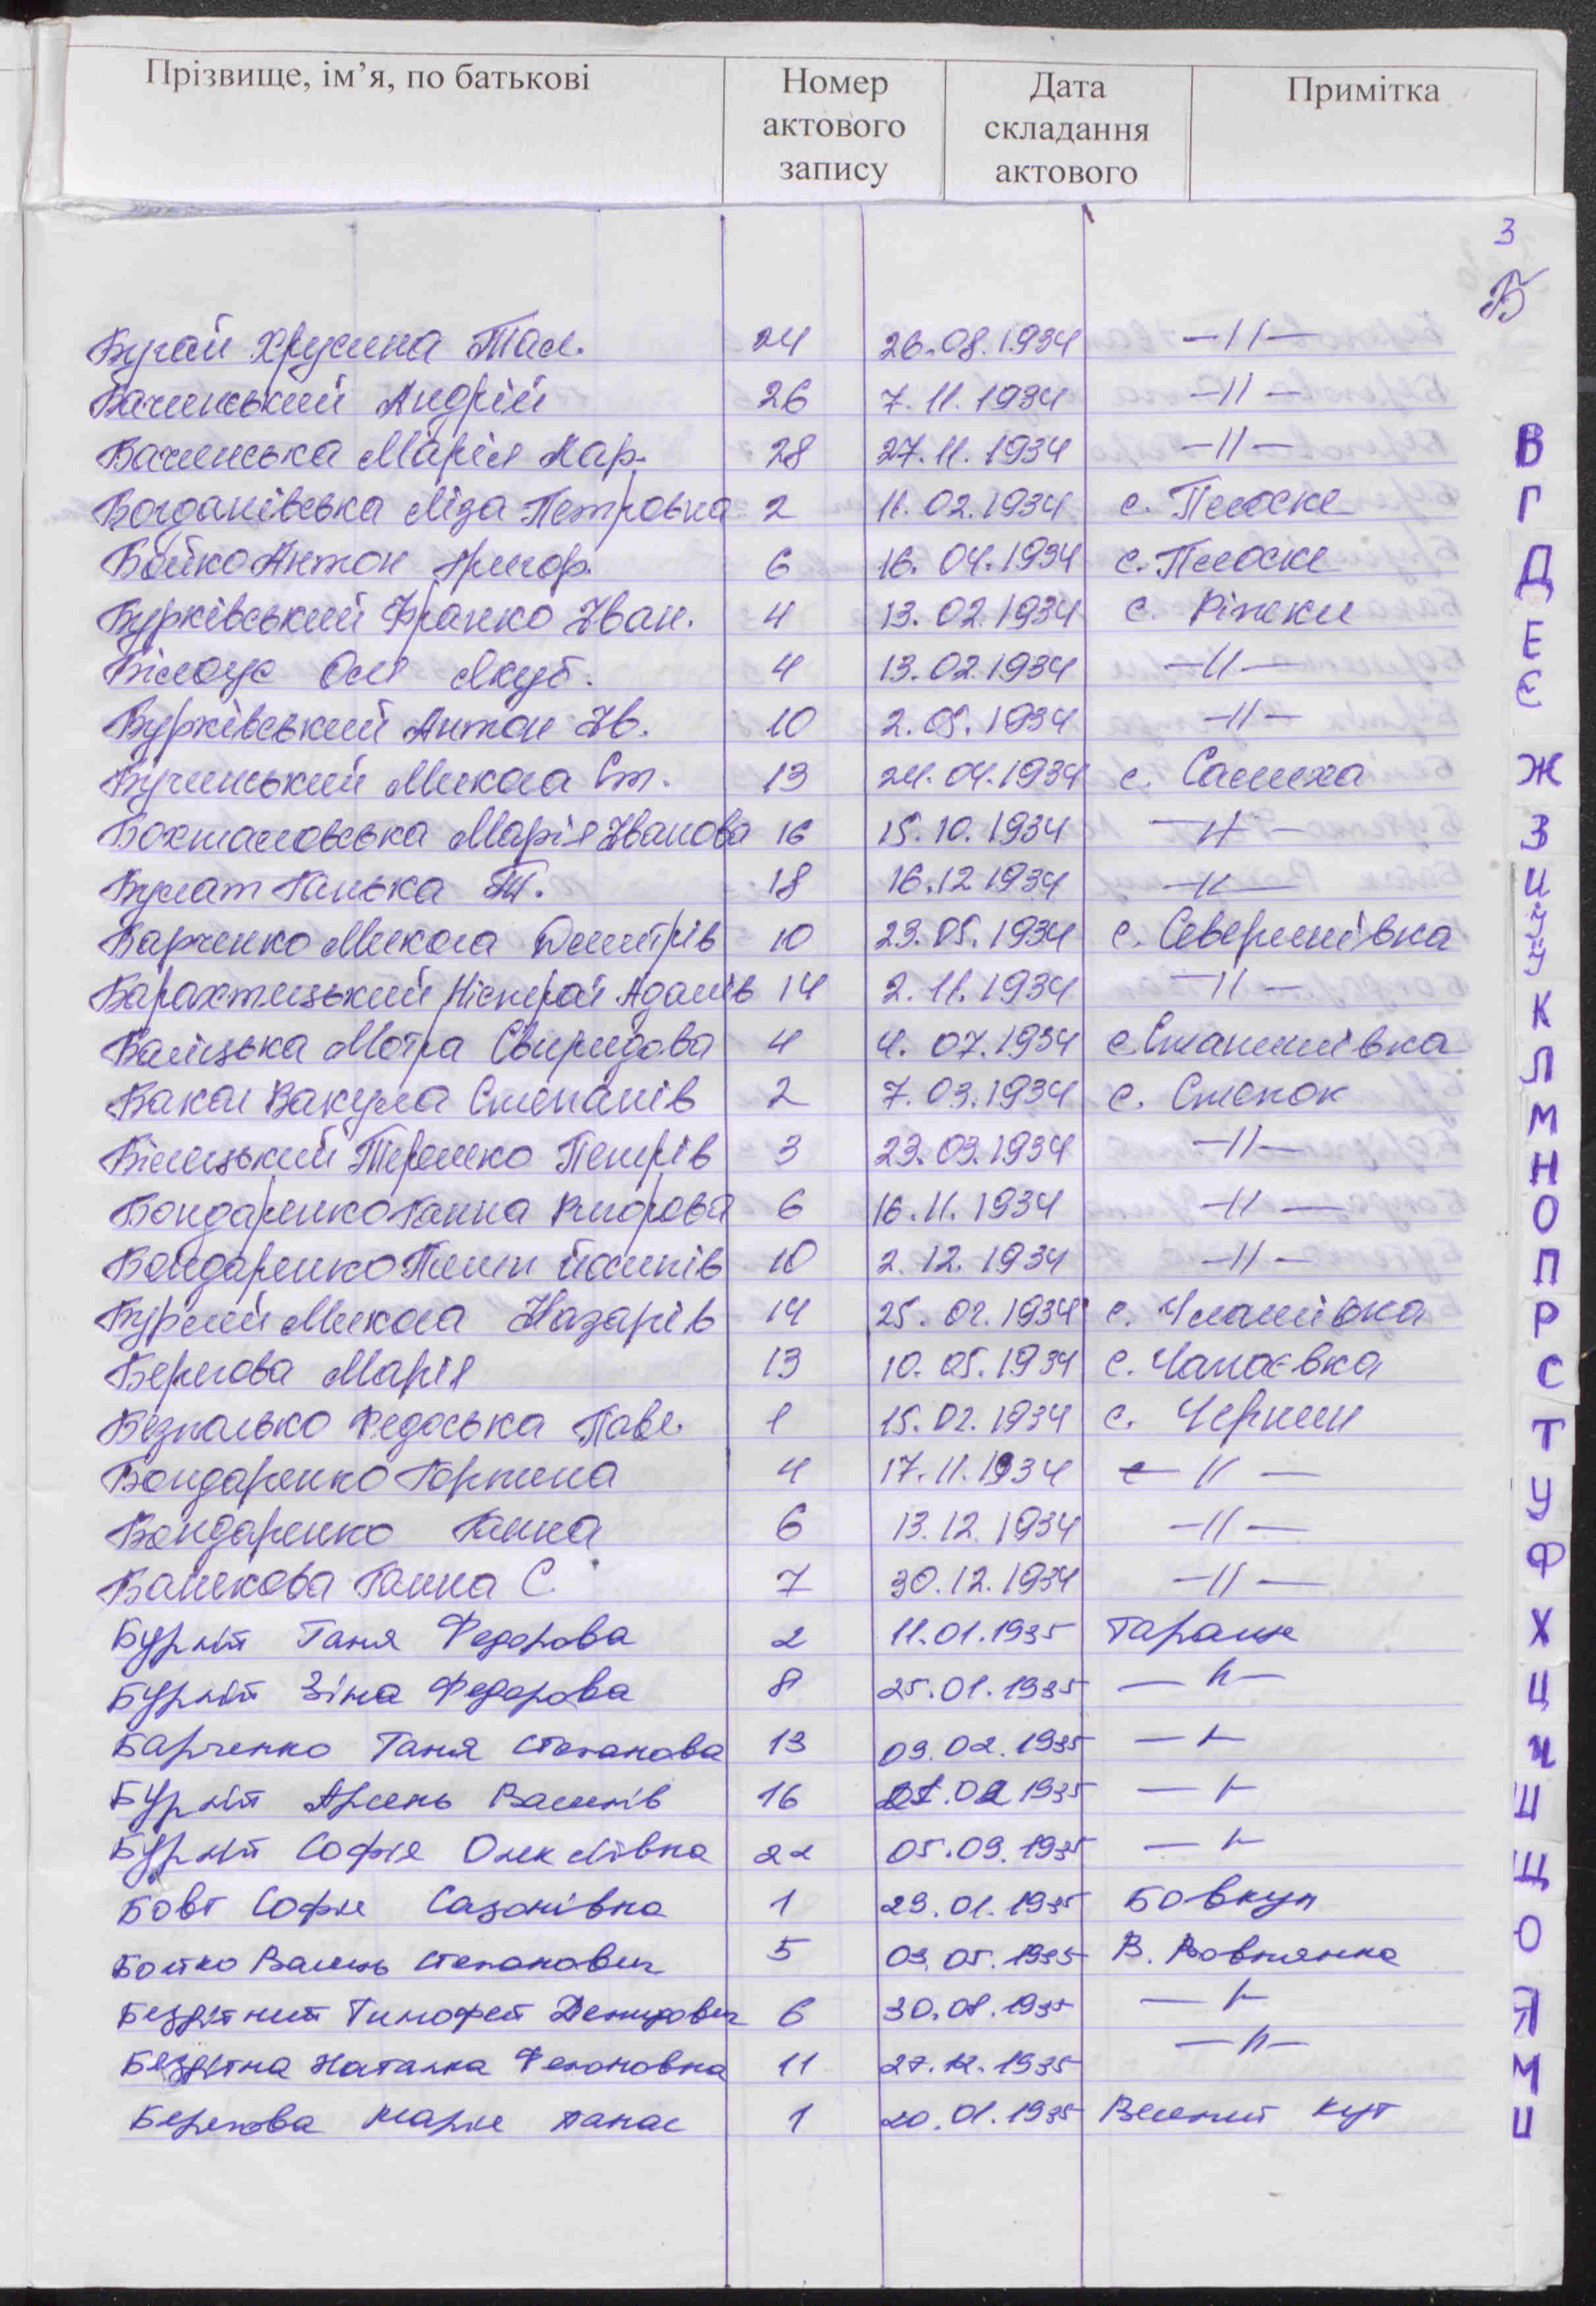 Прізвище, ім’я, по батькові Номер актового запису Дата складання актового Примітка
3
Б
Бугай Хрусина Тал. 24 26.08.1934 —11—
Бачинський Андрій 26 7.11.1934 —11—
Бачинська Марія Кар. 28 27.11.1934 —11—
Богданівська Ліза Петровна 2 11.02.1934 с. Плоске
Бойко Антон Григор. 6 16.04.1934 с. Плоске
Бурківський Франко Іван. 4 13.02.1934 с. Ріжки
Білоус Оля Якуб. 4 13.02.1934 —11—
Бурківський Антон Ів. 10 2.05.1934 —11—
Бучинський Микола Ст. 13 24.04.1934 с. Салиха
Бохталовська Марія Іванова 16 15.10.1934 —11—
Булат Ганька Т. 18 16.12.1934 —11—
Барченко Микола Дмитрів 10 23.05.1934 с. Северинівка
Барахтицький Адамів 14 2.11.1934 —11—
Баліцька Мотра Свиридова 4 4.07.1934 с.
Бакал Вакула Степанів 2 7.03.1934 с. Степок
Білецький Терешко Петрів 3 23.03.1934 —11—
Бондаренко Ганна Григорова 6 16.11.1934 —11—
Бондаренко Пилип Йосипів 10 2.12.1934 —11—
Бурлій Микола Назарів 14 25.02.1934 с. Улашівка
Берегова Марія 13 10.05.1934 с. Чапаєвка
Безпалько Федоська Павл. 1 15.02.1934 с. Чернин
Бондаренко Горпина 4 17.11.1934 —11—
Бондаренко Ганна 6 13.12.1934 —11—
Банкова Ганна С. 7 30.12.1934 —11—
Бурлій Таня Федорова 2 11.01.1935 Тараща
Бурлій Зіна Федорова 8 25.01.1935 —11—
Барченко Таня Степанова 13 09.02.1935 —11—
Бурлій Арсень Василів 16 1935 —11—
Бурлій Софія 22 05.09.1935 —11—
Бовт Софія Сазонівна 1 29.01.1935 Бовкун
Бойко Василь Степанович 5 03.05.1935 В. Вовнянка
Бездітний Тимофей Демидович 6 30.08.1935 —11—
Бездітна Наталка Феноновна 11 27.12.1935 —11—
Берегова Марія Панас 1 20.01.1935 Веселий Кут
В
Г
Д
Е
Є
Ж
З
И
І
Ї
К
Л
М
Н
О
П
Р
С
Т
У
Ф
Х
Ц
Ч
Ш
Щ
Ю
Я
М
Ц